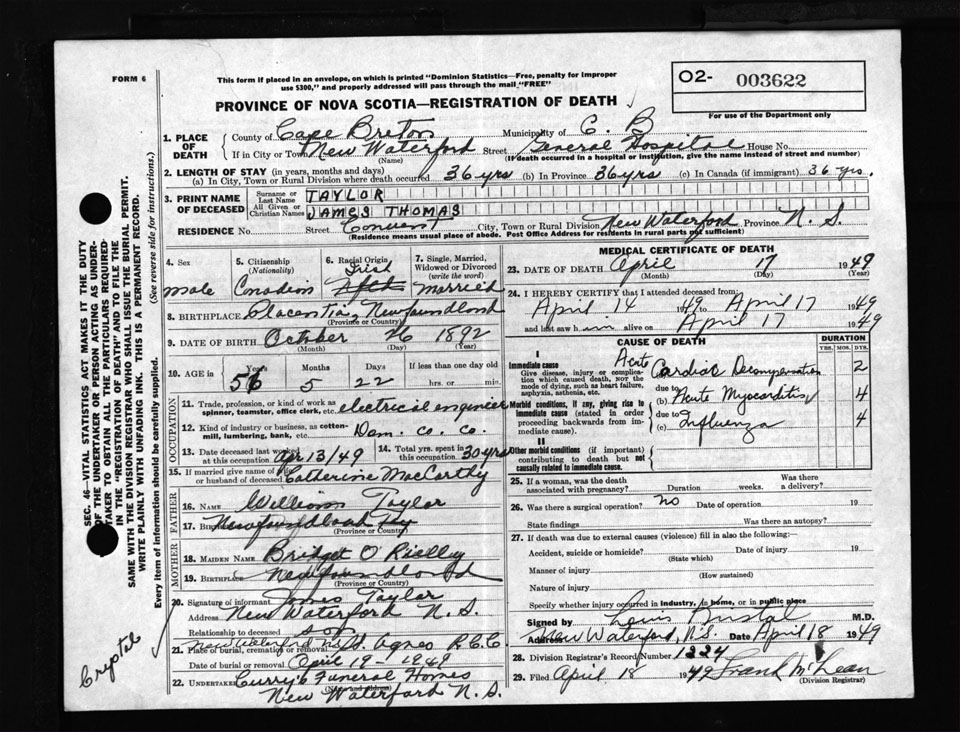 FORM 6
This form if placed in an envelope, on which is printed "Dominion Statistics—Free, penalty for improper
use $300," and properly addressed will pass through the mail "FREE"
O2- 003622
For use of the Department only
PROVINCE OF NOVA SCOTIA—REGISTRATION OF DEATH
1. PLACE OF DEATH County of Cape Breton Municipality of C. B
If in City or Town New Waterford Street General Hospital House No.
(Name) (If death occurred in a hospital or institution, give the name instead of street and number)
2. LENGTH OF STAY (in years, months and days)
(a) In City, Town or Rural Division where death occurred 36 yrs (b) In Province 36 yrs (c) In Canada (if immigrant) 36 yrs.
3. PRINT NAME OF DECEASED
Surname or Last Name TAYLOR
All Given or Christian Names JAMES THOMAS
RESIDENCE No. Street Convent City, Town or Rural Division New Waterford Province N. S.
(Residence means usual place of abode. Post Office Address for residents in rural parts not sufficient)
4. Sex male
5. Citizenship (Nationality) Canadian
6. Racial Origin Irish
7. Single, Married, Widowed or Divorced (write the word) married
8. BIRTHPLACE Placentia, Newfoundland
(Province or Country)
9. DATE OF BIRTH October 26 1892
(Month) (Day) (Year)
10. AGE in Years Months Days If less than one day old
56 5 22 hrs. or min.
OCCUPATION
11. Trade, profession or kind of work as spinner, teamster, office clerk, etc. electrical engineer
12. Kind of industry or business, as cotton-mill, lumbering, bank, etc. Dom. co. co.
13. Date deceased last worked at this occupation Apr 13/49
14. Total yrs. spent in this occupation 30 yrs
15. If married give name of wife or husband of deceased Catherine MacCarthy
FATHER
16. Name William Taylor
17. Birthplace Newfoundland
(Province or Country)
MOTHER
18. MAIDEN NAME Bridget O'Rielley
19. BIRTHPLACE Newfoundland
(Province or Country)
20. Signature of informant James Taylor
Address New Waterford N. S.
Relationship to deceased son
21. Place of burial, cremation or removal New Waterford N.S. St. Agnes R.C.C
Date of burial or removal April 19 - 1949
22. UNDERTAKER Curry's Funeral Homes
New Waterford N. S.
MEDICAL CERTIFICATE OF DEATH
23. DATE OF DEATH April 17 1949
(Month) (Day) (Year)
24. I HEREBY CERTIFY that I attended deceased from:
April 14 1949 to April 17 1949
and last saw him alive on April 17 1949
CAUSE OF DEATH
DURATION
YRS. MOS. DYS.
I
Immediate cause
Give disease, injury or complication which caused death, not the mode of dying, such as heart failure, asphyxia, asthenia, etc.
(a) Acute Cardiac Decompensation 2
Morbid conditions, if any, giving rise to immediate cause (stated in order proceeding backwards from immediate cause).
due to (b) Acute Myocarditis 4
due to (c) Influenza 4
II
Other morbid conditions (if important) contributing to death but not causally related to immediate cause.
25. If a woman, was the death associated with pregnancy? Duration weeks. Was there a delivery?
26. Was there a surgical operation? no Date of operation 19
State findings Was there an autopsy?
27. If death was due to external causes (violence) fill in also the following:
Accident, suicide or homicide? Date of injury 19
(State which)
Manner of injury
(How sustained)
Nature of injury
Specify whether injury occurred in industry, in home, or in public place
Signed by Louis M.D.
Address New Waterford, N.S. Date April 18 1949
28. Division Registrar's Record Number 1224
29. Filed April 18 1949 Frank McLean
(Division Registrar)
SEC. 46—VITAL STATISTICS ACT MAKES IT THE DUTY
OF THE UNDERTAKER OR PERSON ACTING AS UNDER-
TAKER TO OBTAIN ALL THE PARTICULARS REQUIRED
IN THE "REGISTRATION OF DEATH" AND TO FILE THE
SAME WITH THE DIVISION REGISTRAR WHO SHALL ISSUE THE BURIAL PERMIT.
WRITE PLAINLY WITH UNFADING INK. THIS IS A PERMANENT RECORD.
Every item of information should be carefully supplied. (See reverse side for instructions.)